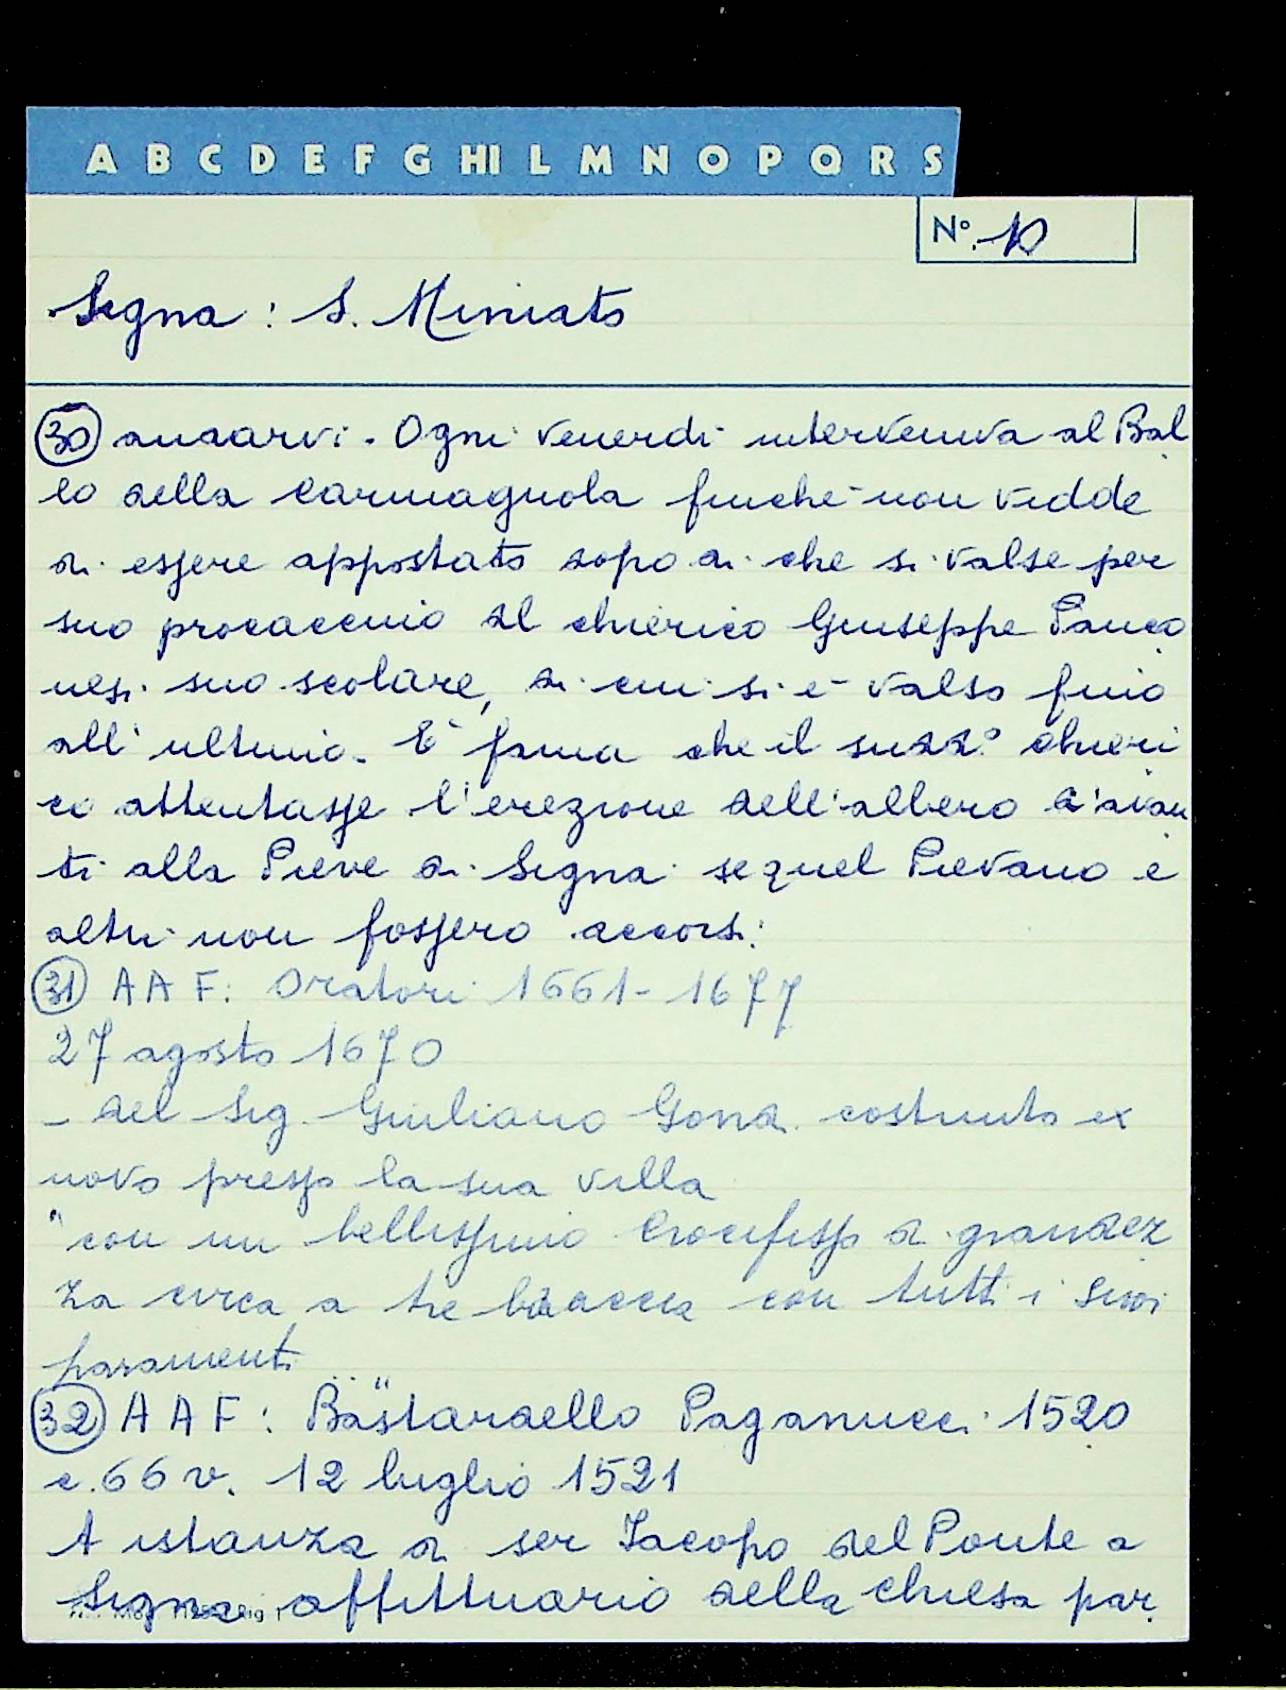 A B C D E F G HI L M N O P Q R S
N° 10
Segna: S. Miniato
30 andarvi. Ogni venerdi interveniva al Bal
lo della Carmagnola finché non vedde
di essere appostato dopo di che si valse per
suo procaccino del chierico Giuseppe Panco
nesi suo scolare, di cui si è valso fino
all'ultimo. E' fama che il sudd.° chieri
co attentasse l'erezione dell'albero d'avan
ti alla Pieve di Segna se quel Pievano e
altri non fossero accorsi:
31 AAF: Oratori 1661-1677
27 agosto 1670
- del Sig. Giuliano Gondi costruito ex
novo presso la sua villa
"con un bellissimo Crocifisso di grandez
za circa a tre braccia con tutti i suoi
paramenti
"
32 AAF: Bastardello Paganucci 1520
c. 66 v. 12 luglio 1521
A istanza di ser Iacopo del Ponte a
Signa affittuario della chiesa par